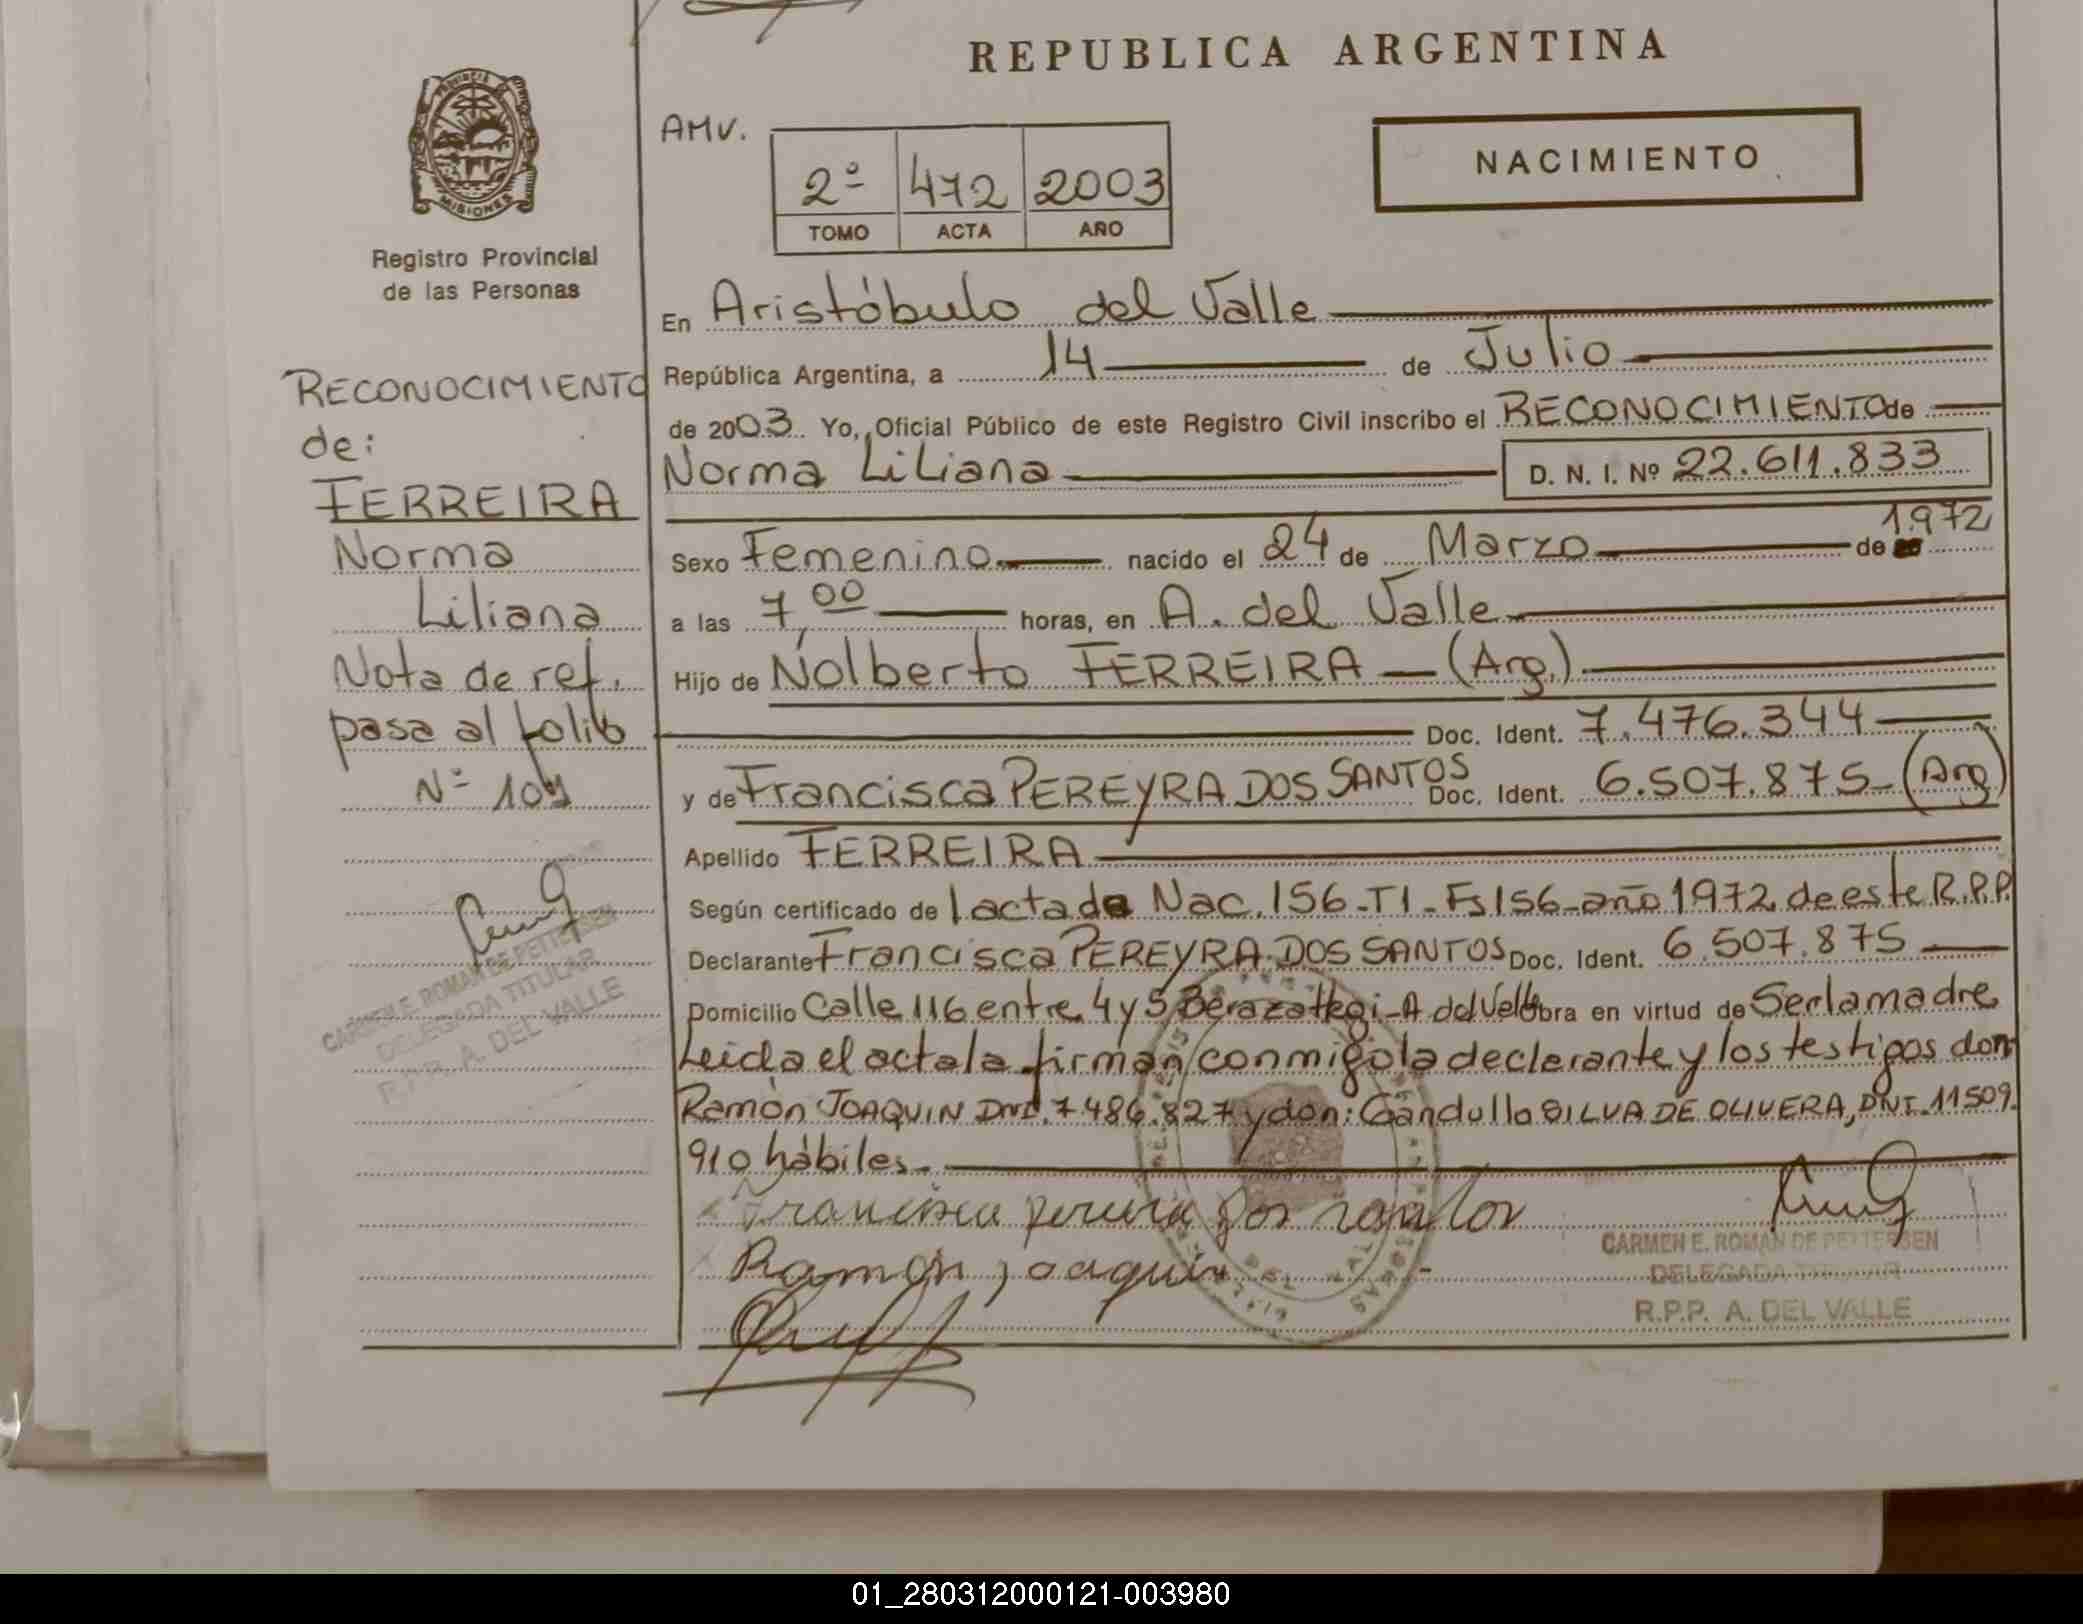 REPUBLICA ARGENTINA
PROVINCIA DE MISIONES
Registro Provincial
de las Personas
AMV.
2º 472 2003
TOMO ACTA AÑO
NACIMIENTO
RECONOCIMIENTO
de:
FERREIRA
Norma
Liliana
Nota de ref.
pasa al folio
Nº 109
CARMEN E. ROMAN DE PETTERSEN
DELEGADA TITULAR
R.P.P. A. DEL VALLE
En Aristóbulo del Valle
República Argentina, a 14 de Julio
de 2003. Yo, Oficial Público de este Registro Civil inscribo el RECONOCIMIENTO de
Norma Liliana D. N. I. Nº 22.611.833
Sexo Femenino nacido el 24 de Marzo de 1972
a las 7,00 horas, en A. del Valle
Hijo de Nolberto FERREIRA — (Arg.)
Doc. Ident. 7.476.344
y de Francisca PEREYRA DOS SANTOS Doc. Ident. 6.507.875 - (Arg)
Apellido FERREIRA
Según certificado de l acta de Nac. 156 - T1 - Fs 156 - año 1972 de este R.P.P.
Declarante Francisca PEREYRA DOS SANTOS Doc. Ident. 6.507.875
Domicilio Calle 116 entre 4 y 5 Berazategi - A del Valle Obra en virtud de Ser la madre
Leida el acta la firman conmigo la declarante y los testigos don
Ramón JOAQUIN DNI. 7486.827 y don: Gandullo SILVA DE OLIVERA, DNI. 11509.
910 hábiles.
Francisca pereira dos santos
Ramon joaquin
CARMEN E. ROMAN DE PETTERSEN
DELEGADA TITULAR
R.P.P. A. DEL VALLE
01_280312000121-003980